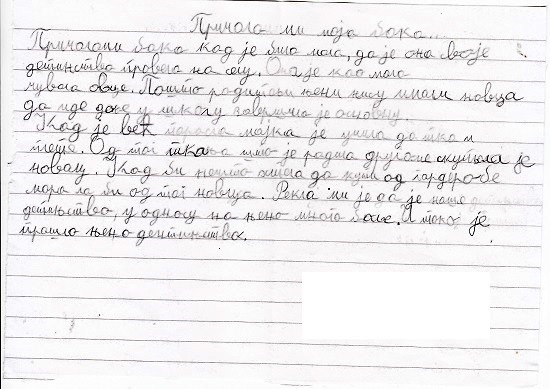 Причала ми моја бака...
Причали бака кад је била мала, да је она своје
детинство провела на селу. Она је као мала
чувала овце. Пошто родитељи њени нису имали новца
да иде даље у школу завршила је основну.
Кад је већ порасла мајка је учила да тка и
плете. Од тог ткања што је радила другоме скупљала је
новац. Кад би нешто хтела да купи од гардеробе
морала би од тог новца. Рекла ми је да је наше
детињство, у односу на њено много боље. И тако је
прошло њено детинство.